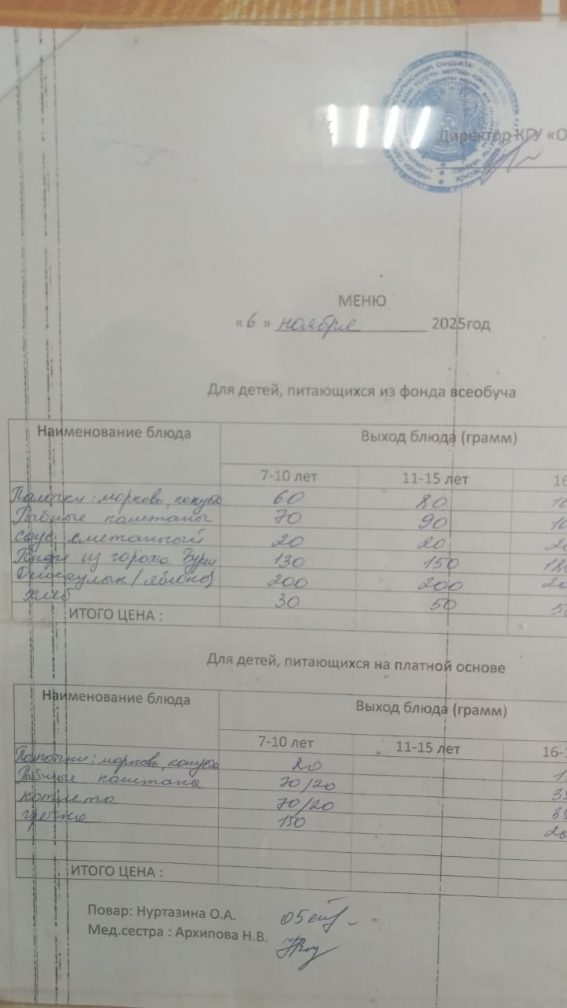 Директор КГУ «О
МЕНЮ
«6» ноября 2025год
Для детей, питающихся из фонда всеобуча
Наименование блюда Выход блюда (грамм)
7-10 лет 11-15 лет 16
Палочки: морковь, капуста 60 80 10
Рыбные каштаны 70 90 10
соус сметанный 20 20 20
из гороха 130 150 180
(яблоко) 200 200 20
хлеб 30 50 50
ИТОГО ЦЕНА :
Для детей, питающихся на платной основе
Наименование блюда Выход блюда (грамм)
7-10 лет 11-15 лет 16-
Палочки: морковь, капуста 20
Рыбные каштаны 70/20
котлета 70/20
гречка 150
ИТОГО ЦЕНА :
Повар: Нуртазина О.А.
Мед.сестра : Архипова Н.В.